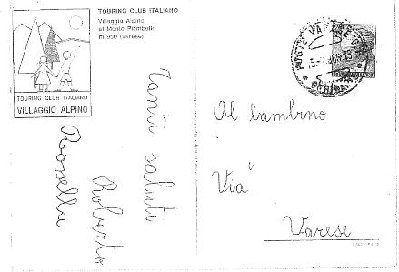 TOURING CLUB ITALIANO
Villaggio Alpino
al Monte Piambello
m 956 (Varese)
TOURING CLUB ITALIANO
VILLAGGIO ALPINO
Tanti saluti
Roberto
Rossella
POSTE VARESE
Al bambino
Via
Varese